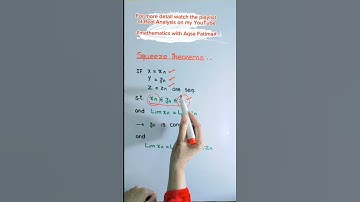 For more detail watch the playlist
of Real Analysis on my YouTube
#mathematics with Aqsa Fatimah
Squeeze theorems :-
If x = xn ✓
y = yn ✓
z = zn are seq
s.t xn ≤ yn ≤
and Lim xn = L zn
→ yn is con
and
Lim xn = L zn